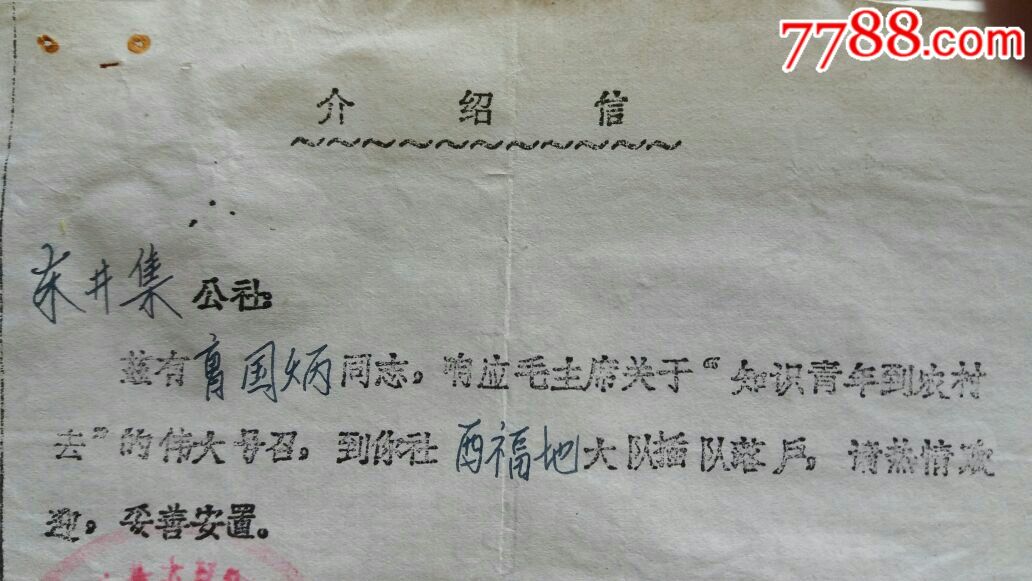 7788.com
介绍信
东井集公社:
兹有曹国炳同志,响应毛主席关于“知识青年到农村
去”的伟大号召,到你社西福地大队插队落户,请热情欢
迎,妥善安置。